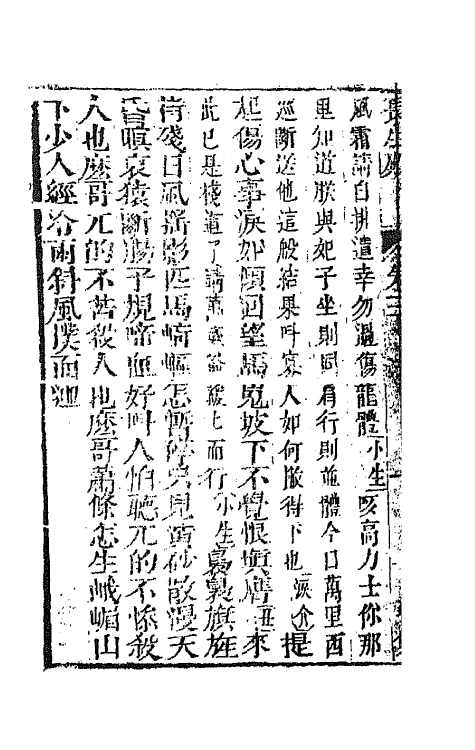 長生殿 卷三
風霜請自排遣幸勿過傷龍體小生咳高力士你那
里知道朕與妃子坐則同肩行則並體今日萬里西
巡斷送他這般結果呌寡人如何撇得下也淚介提
起傷心事淚如傾回望馬嵬坡下不覺恨填膺丑來
此已是棧道了請萬歲爺緩上而行小生裊裊旗旌
背殘日風搖影匹馬崎嶇怎暫停只見黃砂散漫天
昏暝哀猿斷腸子規啼血好呌人怕聽兀的不慘殺
人也麼哥兀的不苦殺人也麼哥蕭條怎生峨嵋山
下少人經冷雨斜風撲面迎